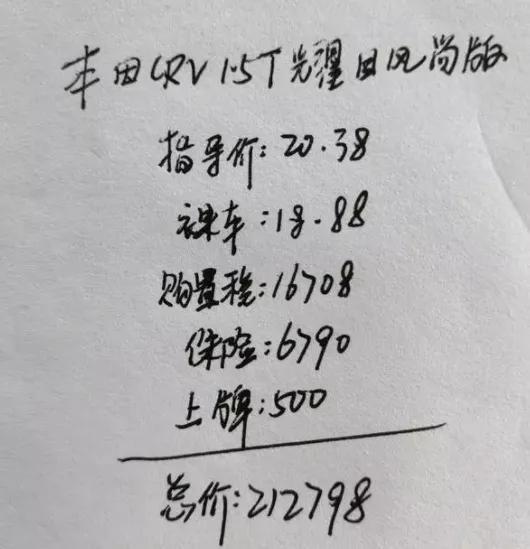 本田CRV 1.5T 风尚版
指导价:20.38
裸车:18.88
购置税:16708
保险:6790
上牌:500
总价:212798